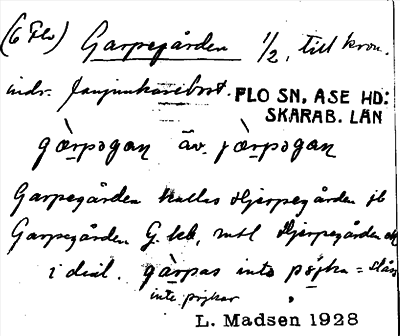 (6 Flo) Garpegården 1/2, till kron.
indr.
FLO SN, ASE HD:
SKARAB. LÄN
gàrpəgan äv. jàrpəgan
Garpegården kallas Hjerpegården jb
Garpegården G. kb, mtl Hjerpegården
i dial. gàrpas inte pojka = slåss
inte pojkar
L. Madsen 1928